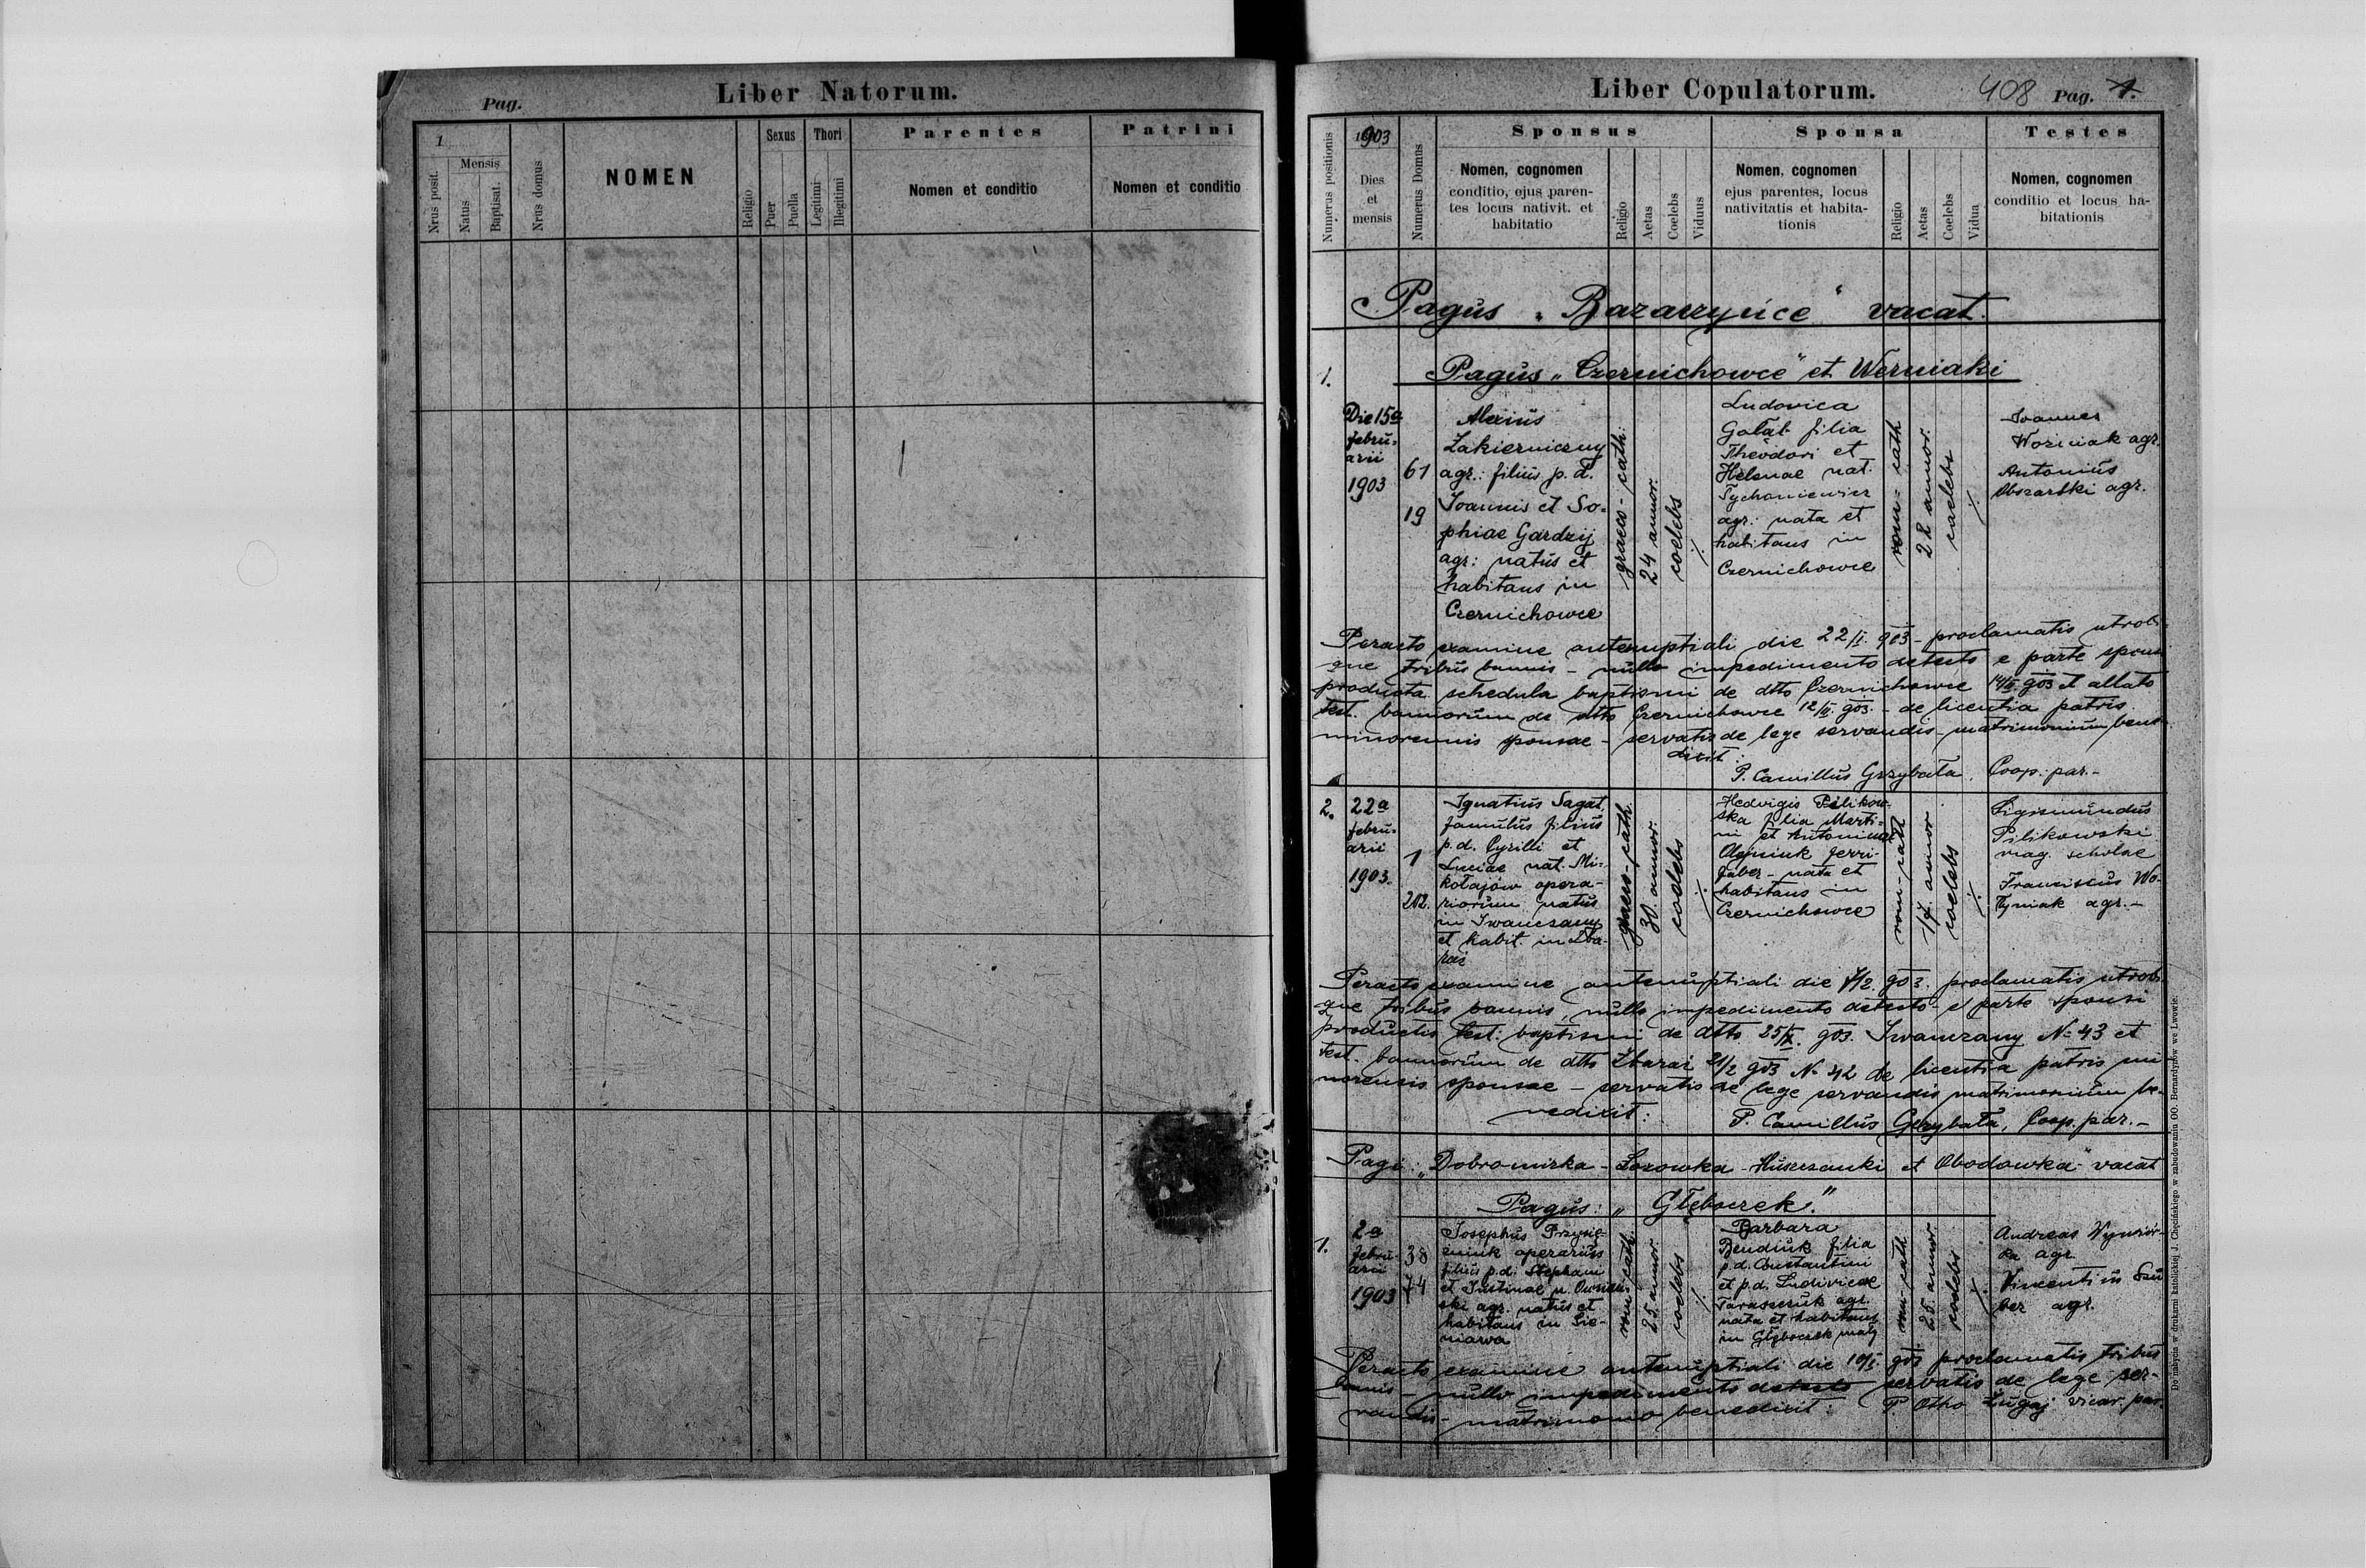 Pag.
Liber Natorum.
1
Nrus posit.
Mensis
Natus
Baptisat.
Nrus domus
NOMEN
Religio
Sexus
Puer
Puella
Thori
Legitimi
Illegitimi
Parentes
Nomen et conditio
Patrini
Nomen et conditio
Liber Copulatorum.
408 Pag. 1.
Numerus positionis
1903
Dies
et
mensis
Numerus Domus
Sponsus
Nomen, cognomen
conditio, ejus paren-
tes locus nativit. et
habitatio
Religio
Aetas
Coelebs
Viduus
Sponsa
Nomen, cognomen
ejus parentes, locus
nativitatis et habita-
tionis
Religio
Aetas
Coelebs
Vidua
Testes
Nomen, cognomen
conditio et locus ha-
bitationis
Pagus „ vacat.
1.
Pagus „Czernichowce" et Werniaki
Die 15a
febru-
arii
1903
61
19
Alexius
Łakierniczny
agr.: filius p. d.
Joannis et So-
phiae Gardzij
agr: natus et
habitans in
Czernichowce
graeco-cath.
24 annor.
coelebs
Ludovica
Gołąb filia
Theodori et
Helenae nat.
Tychoniewicz
agr: nata et
habitans in
Czernichowce
rom-cath
22 annor.
coelebs
Joannes
Woźniak agr.
Antonius
Obszarski agr.
Peracto examine antenuptiali die 22/I. 903 - proclamatis utrob-
que tribus bannis - nullo impedimento detecto e parte spons
producta schedula baptismi de dtto Czernichowce 14/II. 903 et allato
test. bannorum de dtto Czernichowce 12/II. 903. - de licentia patris
minorennis sponsae - servatis de lege servandis - matrimonium bene
dixit:
P. Camillus Grzybała, Coop. par.-
2.
22a
febru-
arii
1903.
1
202.
Ignatius Sagat
famulus filius
p. d. Cyrilli et
Luciae nat. Mi-
kołajów opera-
riorum natus
in Iwanczany
et habit. in Zba-
raż
graeco-cath.
30. annor.
coelebs
Hedvigis Pilikow-
ska filia Marti-
ni et Antoninae
Olejniuk ferri-
faber - nata et
habitans in
Czernichowce
rom-cath
17. annor
coelebs
Sigismundus
Pilikowski
mag. scholae
Franciscus Wo-
łyniak agr.-
Peracto examine antenuptiali die 7/2. 903. proclamatis utrob-
que tribus bannis, nullo impedimento detecto - e parte sponsi
productis test. baptismi de dtto 903. Iwanczany No 43 et
test. bannorum de dtto Zbaraż 21/2 903 No 42 de licentia patris mi
norennis sponsae - servatis de lege servandis matrimonium be-
nedixit:
P. Camillus Grzybała, Coop. par.-
Pagi: „Dobromirka - Łozowka - Huszczanki et Obodowka" vacat
Pagus: „Głęboczek."
1.
2a
febru-
arii
1903
38
74
Josephus Przysię-
żniuk operarius
filius p.d. Stephani
et Justinae n.
ski agr. natus et
habitans in Sie-
niawa
rom-cath.
25. annor.
coelebs
Barbara
Bendiuk filia
p.d. Constantini
et p.d. Ludivicae
Tarasczuk agr.
nata et habitans
in Głęboczek mały
rom-cath
25. annor.
coelebs
Andreas
ka agr
Vincentius Szu
ber agr.
Peracto examine antenuptiali die 10/I. 903 proclamatis tribus
bannis - nullo impedimento detecto servatis de lege ser-
vandis - matrimonio benedixit: P. Otho Ługaj vicar par.
Do nabycia w drukarni katolickiej J. Chęcińskiego w zabudowaniu OO. Bernardynów we Lwowie.